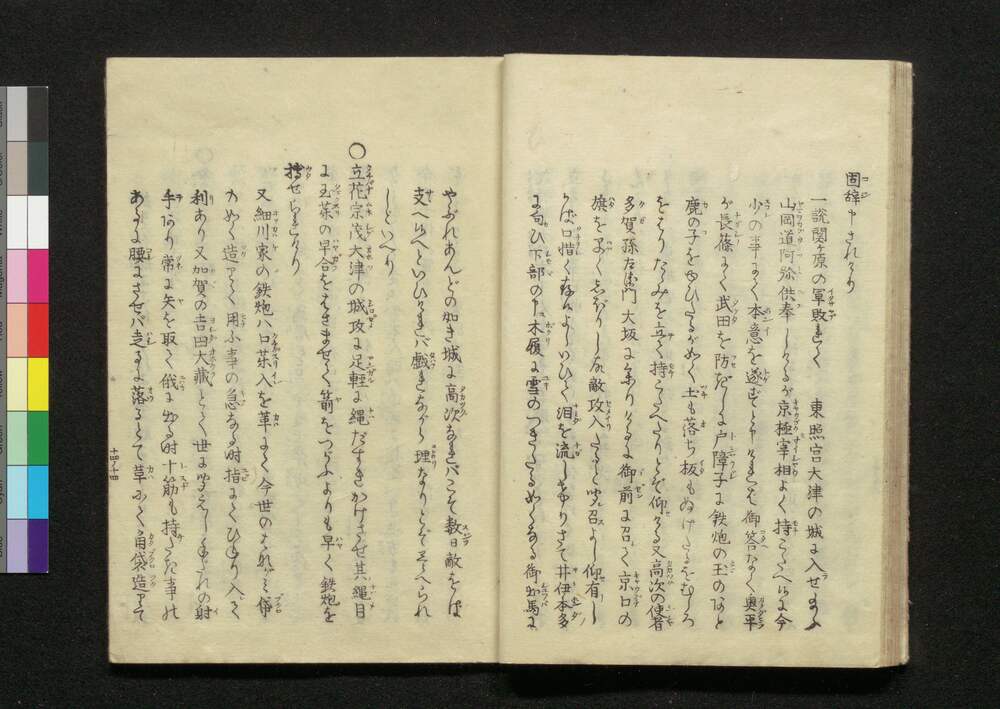 固辞申されけり
一説関ヶ原の軍敗れて 東照宮大津の城に入せ給ふ
山岡道阿弥供奉しけるが京極宰相よく持こたへ候に今
少の事にて本意を遂ずと申けれども御答なく奥平
が長篠にて武田を防ぎしは戸障子に鉄炮の玉のあと
鹿の子をゆひたるがごとく土も落ち板もぬけたるをむしろ
をはりたゝみを立て持こたへたりとぞ仰ける又高次の使者
多賀孫左衛門大坂に参りければ御前に召て京口の
旗を
敵攻入たると聞召よし仰有し
かば口惜く存ずるよしいひて泪を流しけりさて井伊本多
に向ひ下部の木履に雪のつきたるごとくなる御馬に
やぶれあんどの如き城に高次なればこそ数日敵をば
支へ候へといひければ戯れながら理なりとぞ
しといへり
○立花宗茂大津の城攻に足軽に縄だすきかけさせ其縄目
に玉薬の早合をはさませて箭をつがふよりも早く鉄炮を
搏せられけり
又細川家の鉄炮ハ口薬入を革にて今世の
のごとく造りて用ふ事の急なる時指にてひねり入て
利あり又加賀の吉田大蔵とて世に聞えし
の射
手あり常に矢を取て俄に出る時十筋も持たる事の
あるに腰にさせバ走るに落るとて革にて角袋造りて
十四ノ十四